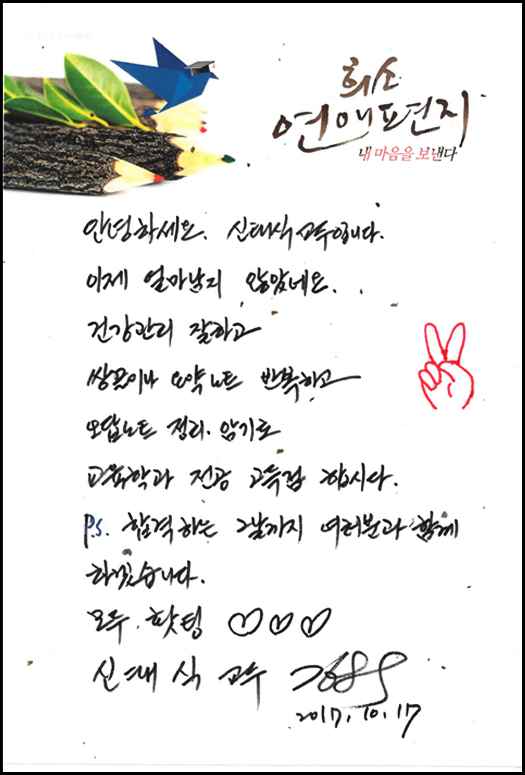 희소
연애표편지
내 마음을 보낸다
안녕하세요. 신태식 교수입니다.
이제 얼마남지 않았네요..
건강관리 잘하고
쌍끌이나 요약노트 반복하고
오답노트 정리·암기로
교육학과 전공 고득점 합시다.
P.S. 합격하는 그날까지 여러분과 함께
하겠습니다.
모두 홧팅 ♡♡♡
신태식 교수
2017. 10. 17